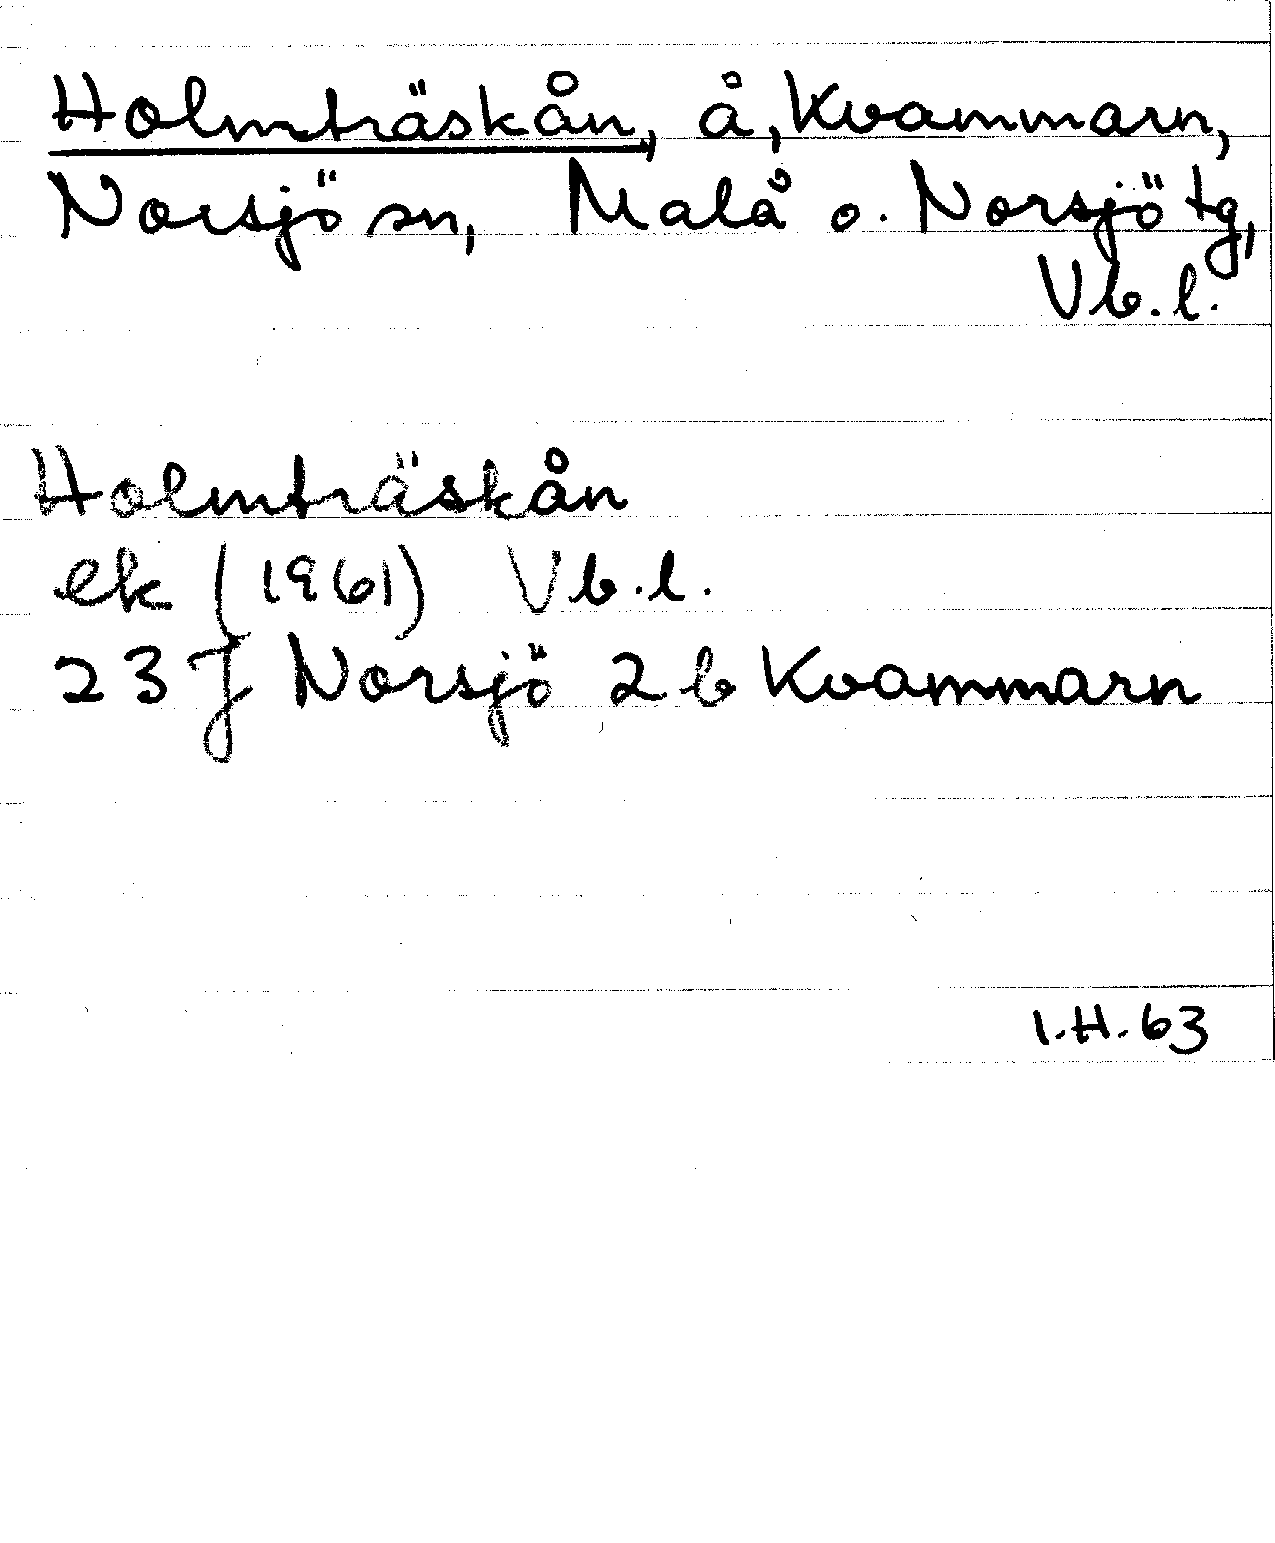 Holmträskån, å, Kvammarn,
Norsjö sn, Malå o. Norsjö tg,
Vb.l.
Holmträskån
ek (1961) Vb.l.
23 J Norsjö 2 b Kvammarn
I.H.63